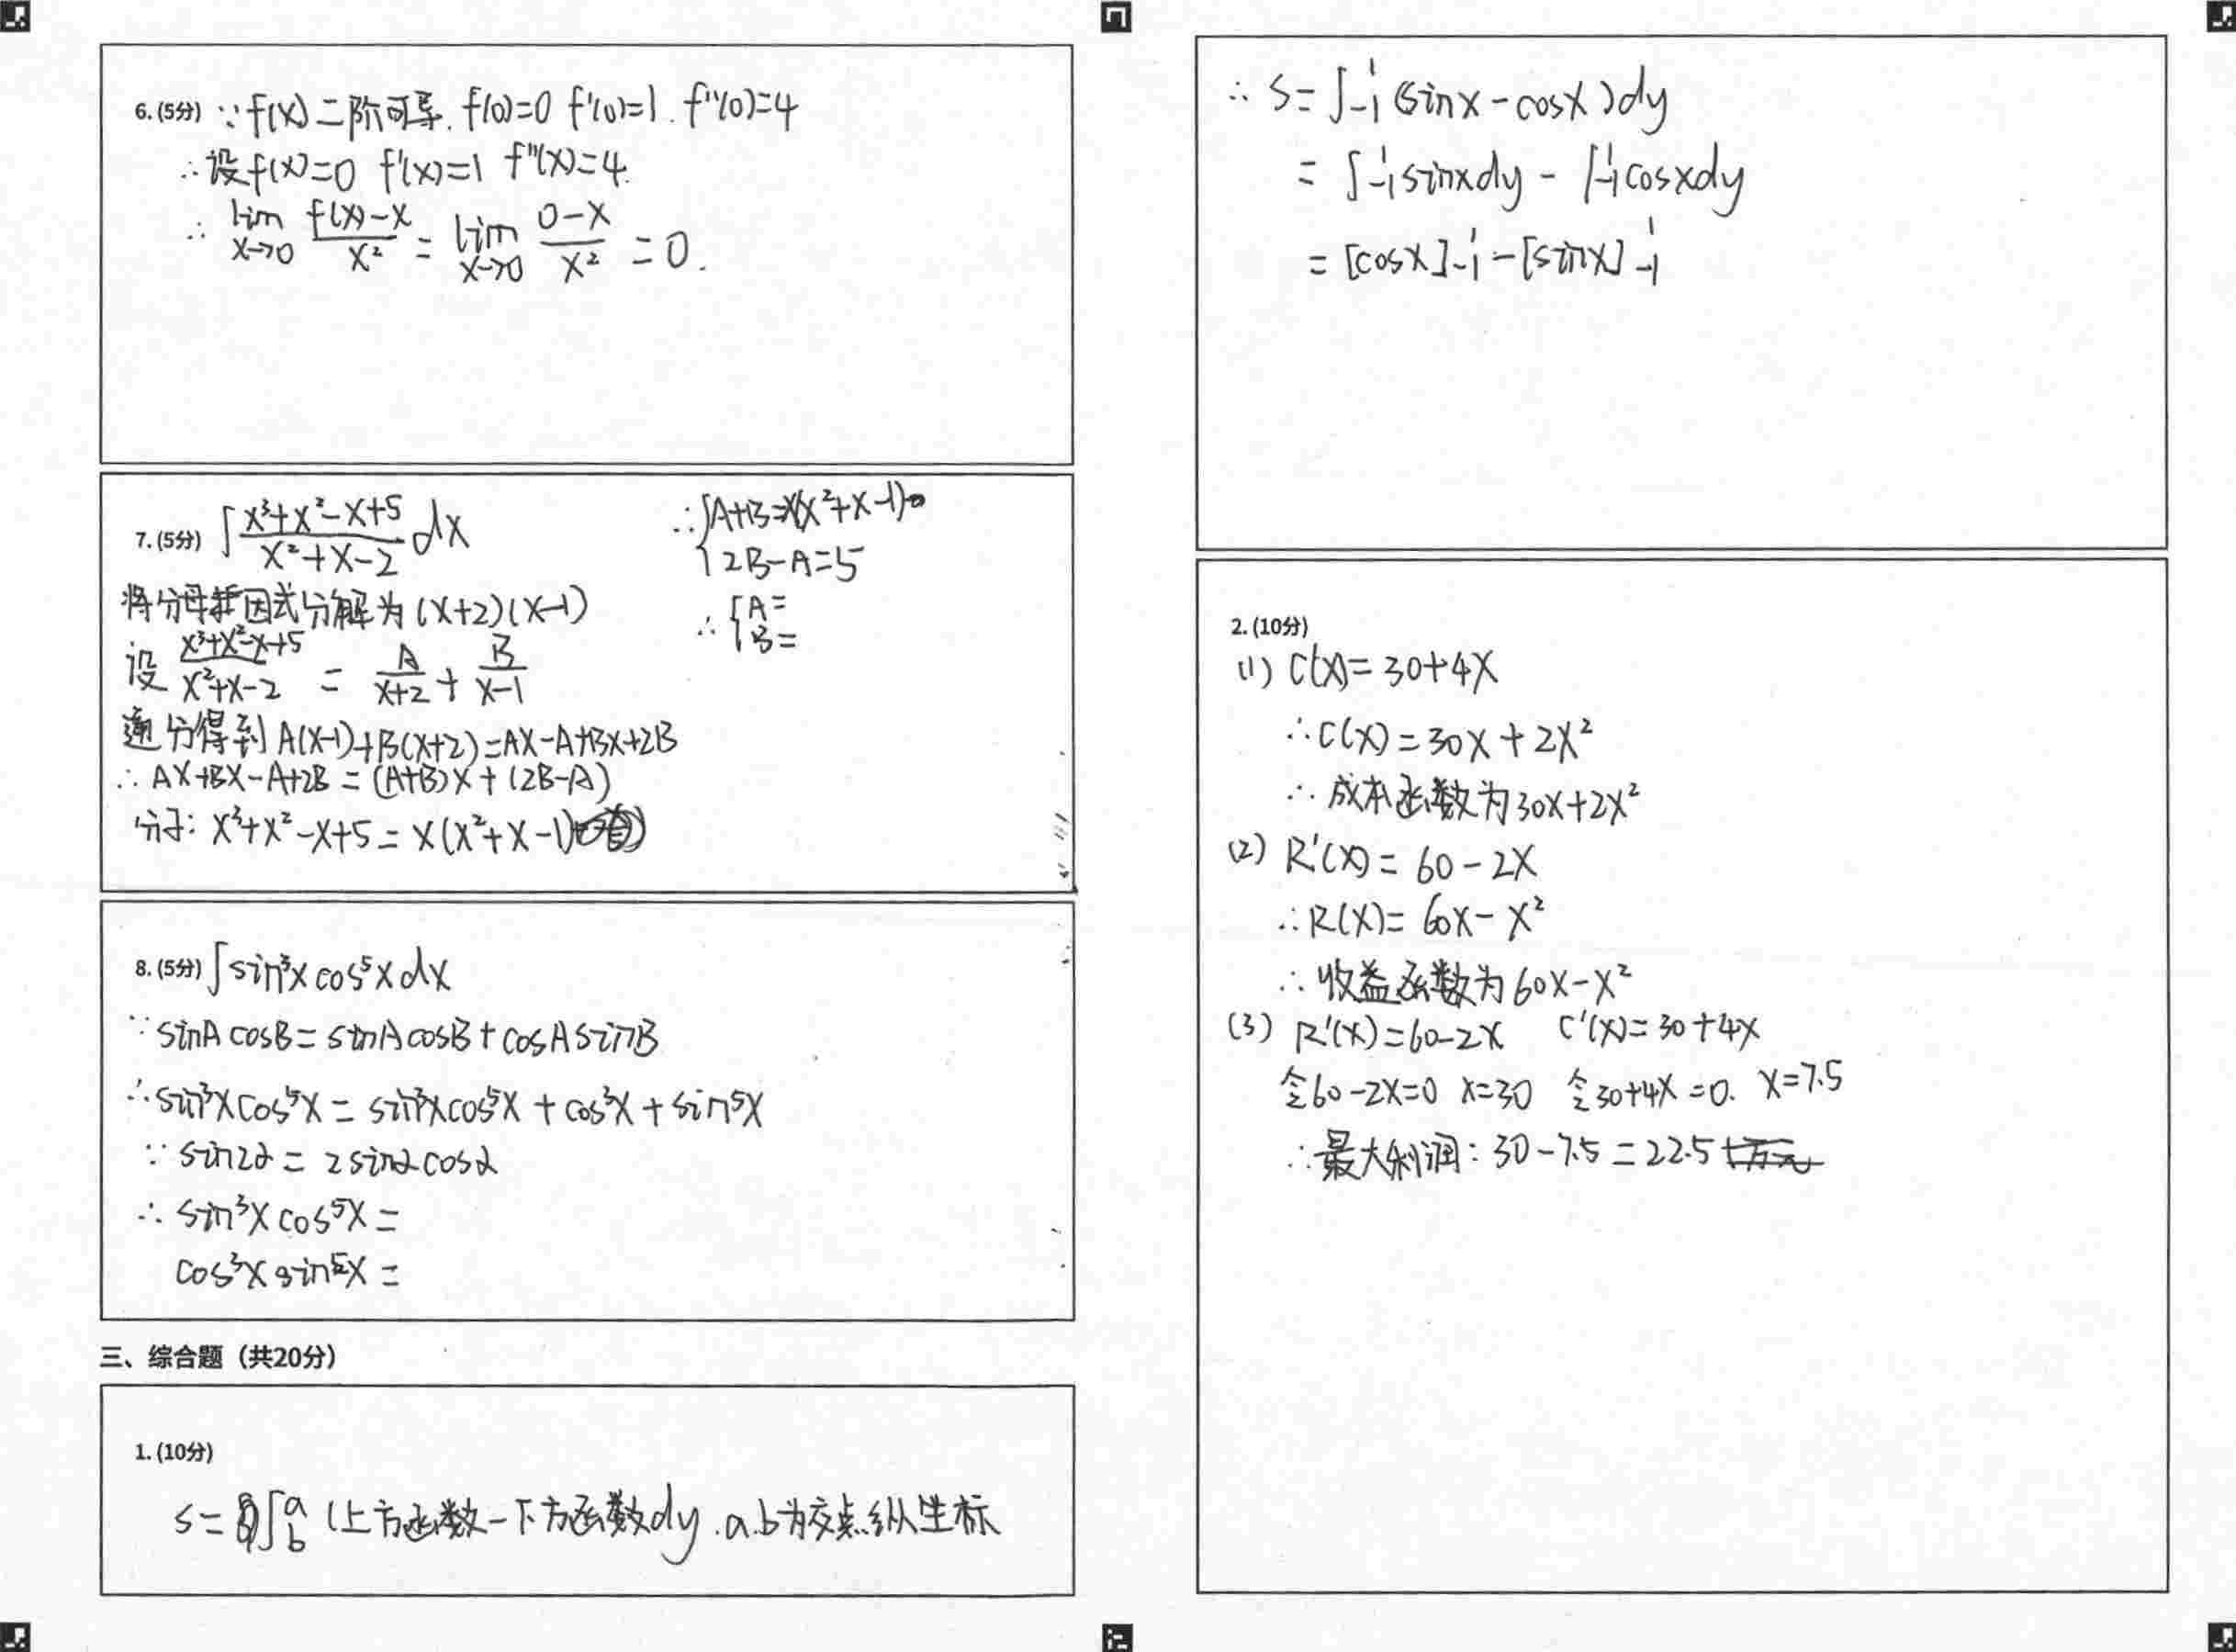 6. (5分) ∵f(x)二阶可导. f(0)=0 f'(0)=1. f''(0)=4
∴设f(x)=0 f'(x)=1 f''(x)=4.
∴ lim x→0 (f(x)-x)/x² = lim x→0 (0-x)/x² = 0.
7. (5分) ∫ (x³+x²-x+5)/(x²+x-2) dx
将分母 因式分解为 (x+2)(x-1)
设 (x³+x²-x+5)/(x²+x-2) = A/(x+2) + B/(x-1)
通分得到 A(x-1)+B(x+2)=Ax-A+Bx+2B
∴ Ax+Bx-A+2B = (A+B)x+(2B-A)
分子: x³+x²-x+5 = x(x²+x-1)
∴ { A+B=x(x²+x-1)
2B-A=5
∴ { A=
B=
8. (5分) ∫sin³x cos⁵x dx
∵ sinA cosB = sinA cosB + cosA sinB
∴ sin³x cos⁵x = sin³x cos⁵x + cos³x + sin⁵x
∵ sin2α = 2sinα cosα
∴ sin³x cos⁵x =
cos³x sin⁵x =
三、综合题（共20分）
1. (10分)
S= ∫ a b (上方函数-下方函数dy. a.b为交点纵坐标
∴ S= ∫-1 1 (sinx-cosx)dy
= ∫-1 1 sinxdy - ∫-1 1 cosxdy
= [cosx]-1 1 - [sinx]-1 1
2. (10分)
(1) C'(x)=30+4x
∴C(x)=30x+2x²
∴ 成本函数为30x+2x²
(2) R'(x)= 60-2x
∴R(x)= 60x-x²
∴ 收益函数为60x-x²
(3) R'(x)=60-2x C'(x)=30+4x
令60-2x=0 x=30 令30+4x=0. x=7.5
∴最大利润: 30-7.5=22.5 万元